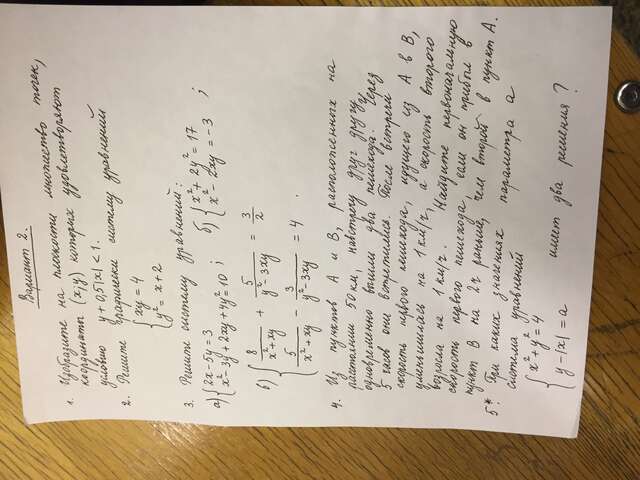 Вариант 2.
1. Изобразите на плоскости множество точек,
координаты (x;y) которых удовлетворяют
условию y + 0,5|x| < 1.
2. Решите графически систему уравнений
{ xy = 4
y = x + 2
3. Решите систему уравнений:
а) { 2x - 5y = 3
x² - 3y + 2xy + y² = 10 ;
б) { x² + 2y² = 17
x² - 2xy = -3 ;
в) { 8/(x² + xy) + 5/(y² - 3xy) = 3/2
5/(x² + xy) - 3/(y² - 3xy) = 4 .
4. Из пунктов А и В, расположенных на
расстоянии 50 км, навстречу друг другу
одновременно вышли два пешехода. Через
5 часов они встретились. После встречи
скорость первого пешехода, идущего из А в В,
уменьшилась на 1 км/ч, а скорость второго
возросла на 1 км/ч. Найдите первоначальную
скорость первого пешехода, если он прибыл в
пункт В на 2 ч раньше, чем второй в пункт А.
5* При каких значениях параметра а
система уравнений
{ x² + y² = 4
y - |x| = a имеет два решения?